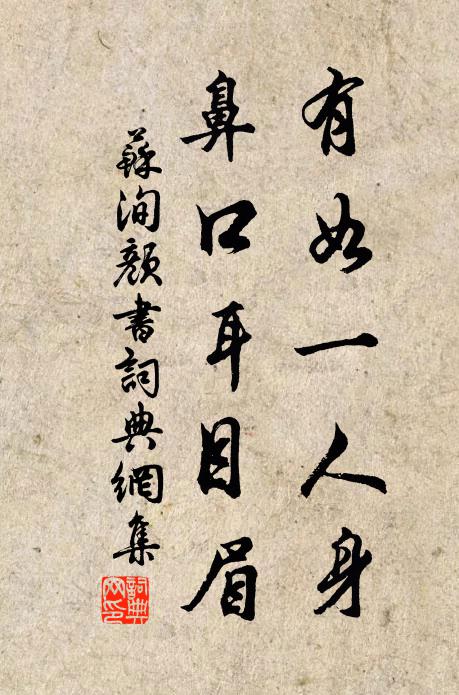 有如一人身
鼻口耳目眉
蘇洵顏書詞典網集
詞典
网印